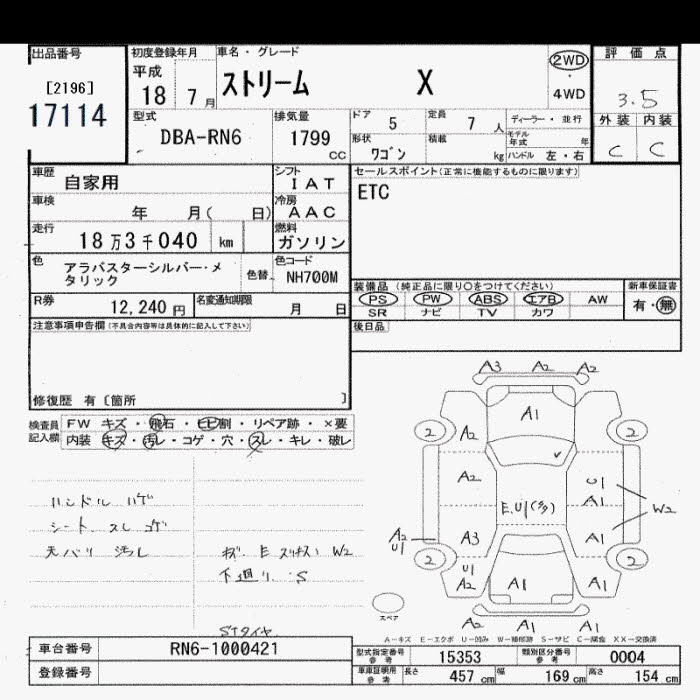 出品番号
[2196]
17114
初度登録年月
平成
18 7月
車名・グレード
ストリーム X
2WD
・
4WD
評価点
3.5
外装 内装
C C
型式
DBA-RN6
排気量
1799
CC
ドア
5
定員
7人
ディーラー・並行
モデル
年式 年
形状
ワゴン
積載
kg
ハンドル 左・右
車歴
自家用
シフト
IAT
車検
年 月( 日)
冷房
AAC
走行
18万3千040 km
燃料
ガソリン
色
アラバスターシルバー・メ
タリック
色替
色コード
NH700M
R券
12,240円
名変通知期限
月 日
セールスポイント(正常に機能するものに限ります)
ETC
装備品(純正品に限り○をつけてください)
PS PW ABS エアB AW
SR ナビ TV カワ
新車保証書
有・無
後日品
注意事項申告欄(不具合内容等は具体的に記入して下さい)
修復歴 有〔箇所 〕
検査員
記入欄
FW キズ・飛石・ヒビ割・リペア跡・×要
内装 キズ・汚レ・コゲ・穴・スレ・キレ・破レ
ハンドル ハゲ
シート スレ コゲ
天バリ 汚レ
下廻り S
STタイヤ
A3 A2 A2
A1
2 2
A2
A2
U1
A1
W2
E.U1(多)
A2
U1
A3
A1
2 2
U1
A2
A1
A1
A2 A1 A1
スペア
A-キズ E-エクボ U-凹み W-補修跡 S-サビ C-腐食 XX-交換済
車台番号
RN6-1000421
登録番号
型式指定番号
参考
15353
類別区分番号
参考
0004
車庫証明用
参考
長さ 457 cm 幅 169 cm 高さ 154 cm